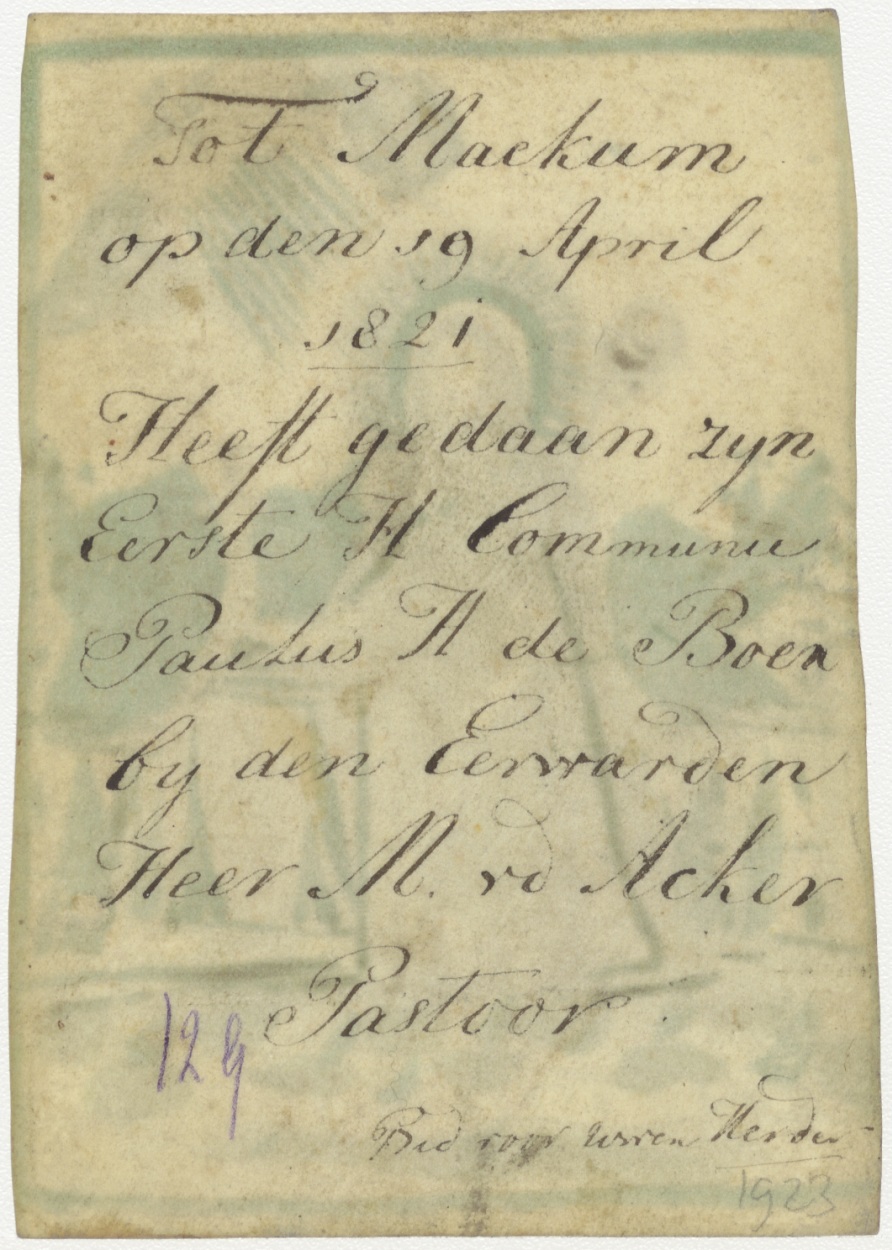 Tot Mackum
op den 19 April
1821
Heeft gedaan zyn
Eerste H Communie
Paulus H de Boer
by den Eerwarden
Heer M. vd Acker
Pastoor
129
Bid voor uwen Herder
1923